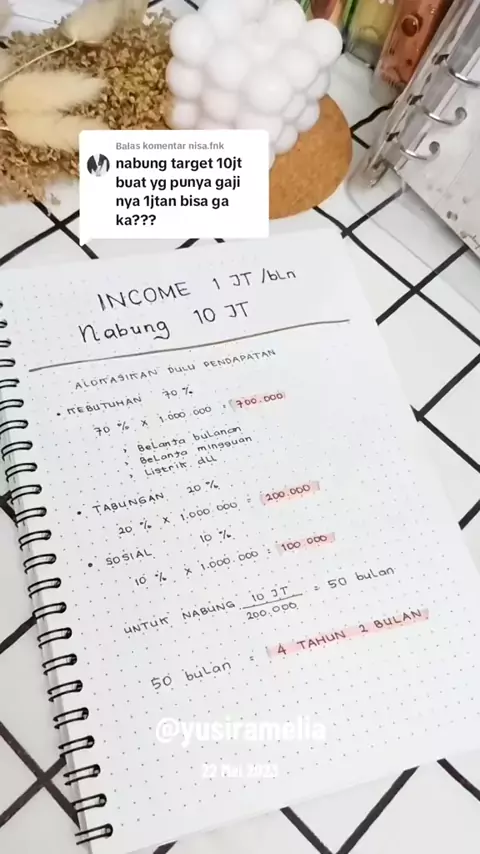 Balas komentar nisa.fnk
nabung target 10jt
buat yg punya gaji
nya 1jtan bisa ga
ka???
INCOME 1 JT /bln
Nabung 10 JT
ALOKASIKAN DULU PENDAPATAN
• KEBUTUHAN 70 %
70 % x 1.000.000 = 700.000
> Belanja bulanan
> Belanja mingguan
> Listrik dll
• TABUNGAN 20 %
20 % x 1.000.000 = 200.000
• SOSIAL 10 %
10 % x 1.000.000 = 100.000
UNTUK NABUNG 10 JT / 200.000 = 50 bulan
50 bulan = 4 TAHUN 2 BULAN
@yusiramelia
22 Mei 2023